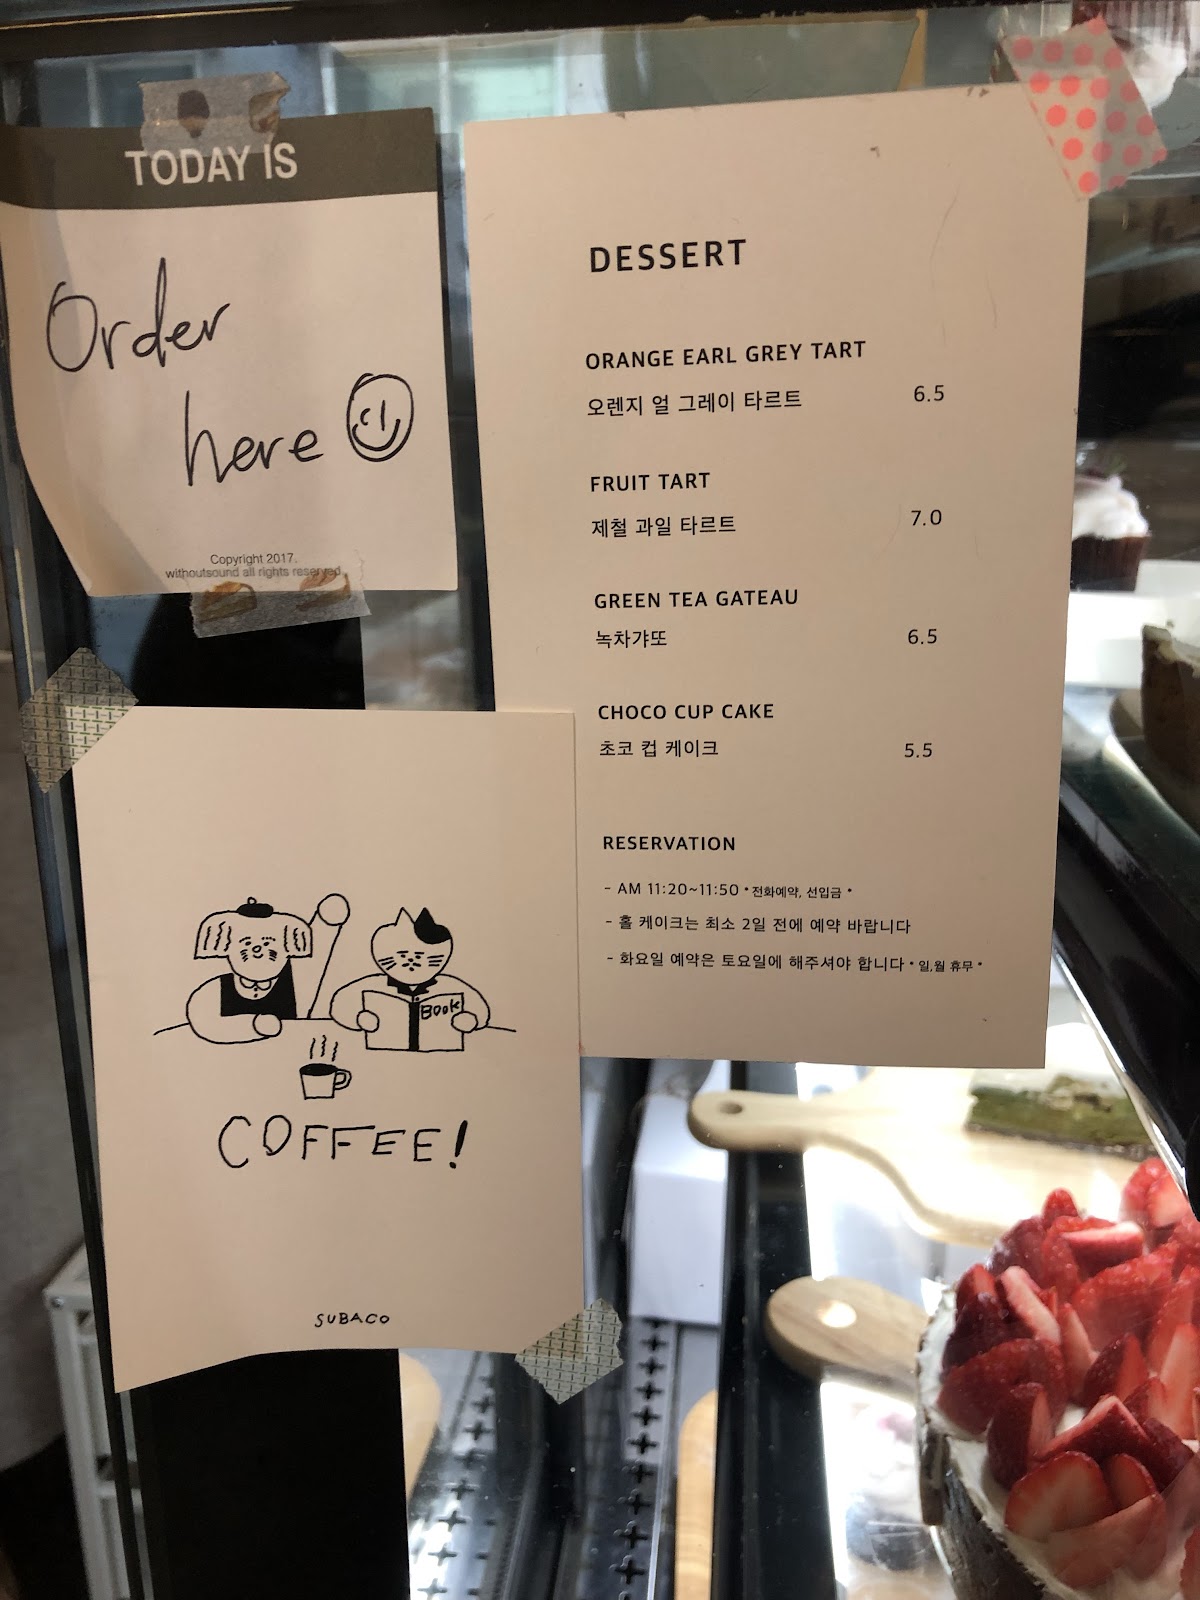 TODAY IS
Order
here
Copyright 2017.
withoutsound all rights reserved
DESSERT
ORANGE EARL GREY TART
오렌지 얼 그레이 타르트 6.5
FRUIT TART
제철 과일 타르트 7.0
GREEN TEA GATEAU
녹차갸또 6.5
CHOCO CUP CAKE
초코 컵 케이크 5.5
RESERVATION
- AM 11:20~11:50 * 전화예약, 선입금 *
- 홀 케이크는 최소 2일 전에 예약 바랍니다
- 화요일 예약은 토요일에 해주셔야 합니다 * 일,월 휴무 *
BOOK
COFFEE!
SUBACO